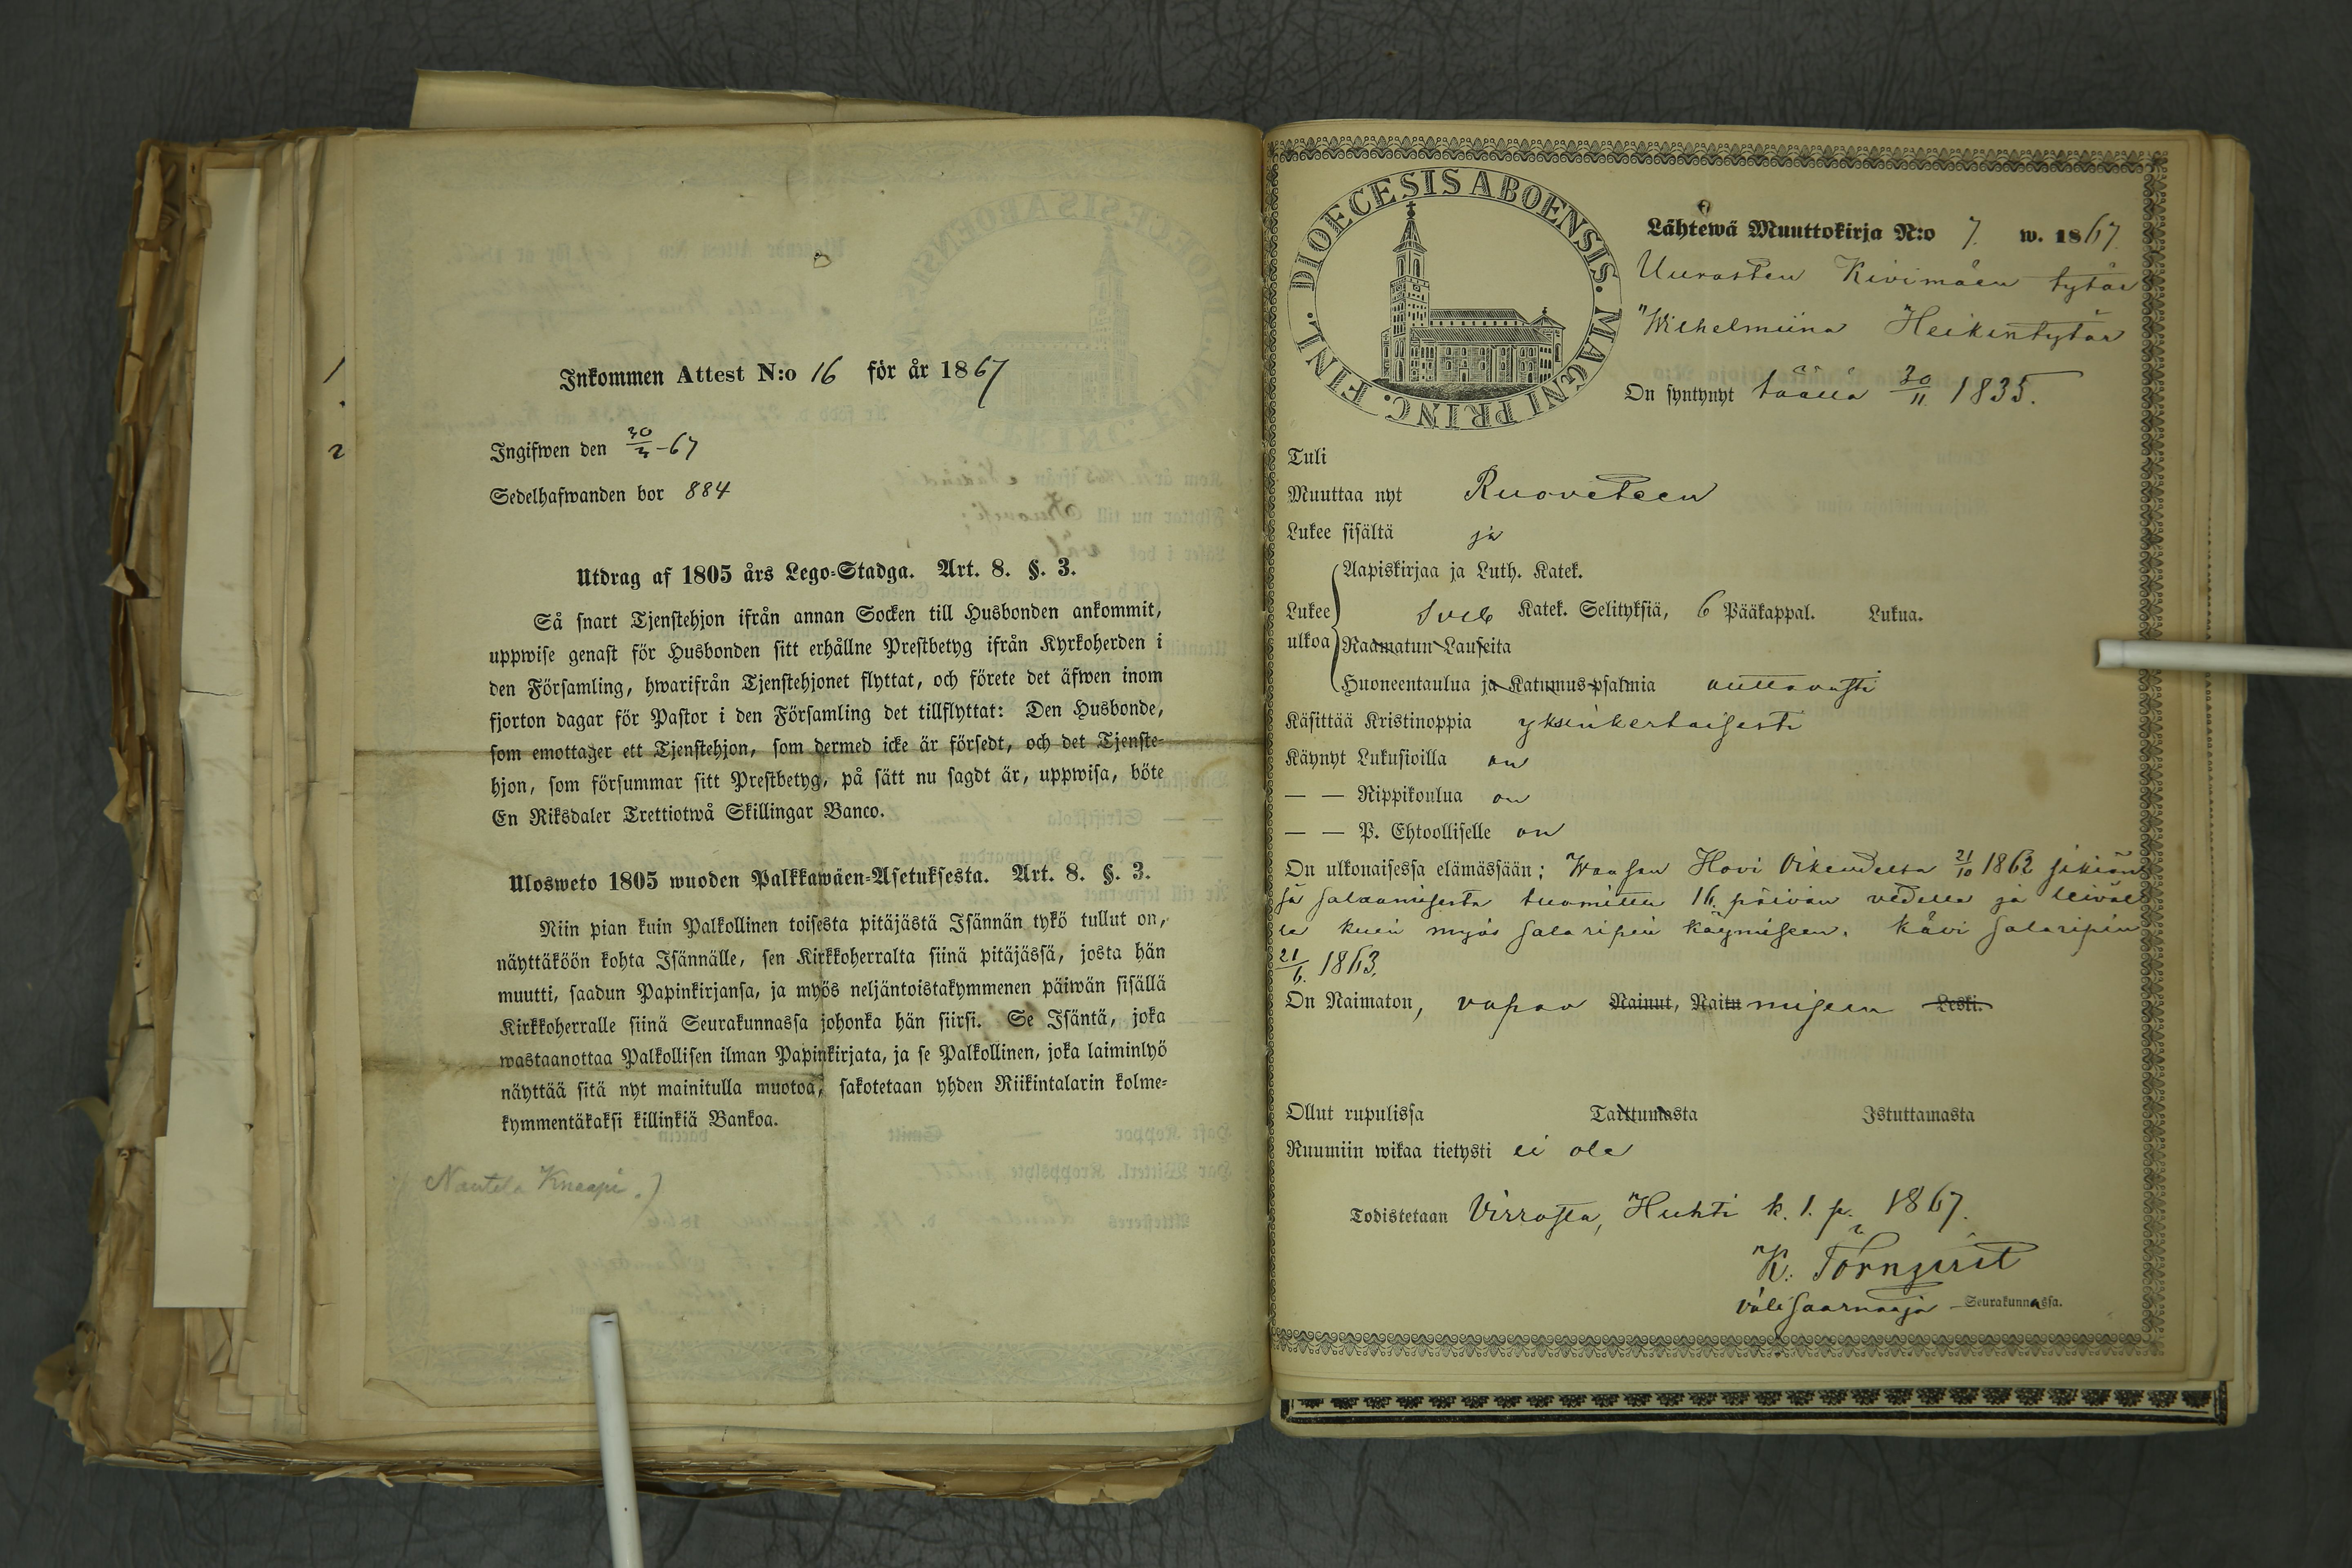 1
2
Inkommen Attest N:o 16 för år 1867
Ingifwen den 30/3-67
Sedelhafwanden bor 884
Utdrag af 1805 års Lego-Stadga. Art. 8. §. 3.
Så snart Tjenstehjon ifrån annan Socken till Husbonden ankommit,
uppwise genast för Husbonden sitt erhållne Prestbetyg ifrån Kyrkoherden i
den Församling, hwarifrån Tjenstehjonet flyttat, och förete det äfwen inom
fjorton dagar för Pastor i den Församling det tillflyttat: Den Husbonde,
som emottager ett Tjenstehjon, som dermed icke är försedt, och det Tjenste-
hjon, som försummar sitt Prestbetyg, på sätt nu sagdt är, uppwisa, böte
En Riksdaler Trettiotwå Skillingar Banco.
Ulosweto 1805 wuoden Palkkawäen-Asetuksesta. Art. 8. §. 3.
Niin pian kuin Palkollinen toisesta pitäjästä Isännän tykö tullut on,
näyttäköön kohta Isännälle, sen Kirkkoherralta siinä pitäjässä, josta hän
muutti, saadun Papinkirjansa, ja myös neljäntoistakymmenen päiwän sisällä
Kirkkoherralle siinä Seurakunnassa johonka hän siirsi. Se Isäntä, joka
wastaanottaa Palkollisen ilman Papinkirjata, ja se Palkollinen, joka laiminlyö
näyttää sitä nyt mainitulla muotoa, sakotetaan yhden Riikintalarin kolme-
kymmentäkaksi killinkiä Bankoa.
Nautela Knaapi.)
DIOECESIS ABOENSIS. MAGNI PRINC. FINL.
Lähtewä Muuttokirja N:o 7. w. 1867.
Uurasten Kivimäen tytär
Wilhelmiina Heikintytär
On syntynyt täällä 30/11 1835.
Tuli
Muuttaa nyt Ruoveteen
Lukee sisältä ja
Aapiskirjaa ja Luth. Katek.
Lukee ulkoa
Sveb Katek. Selityksiä, 6 Pääkappal. Lukua.
Raamatun Lauseita
Huoneentaulua ja Katumus-psalmia auttavasti
Käsittää Kristinoppia yksinkertaisesti
Käynyt Lukusioilla on
— — Rippikoulua on
— — P. Ehtoolliselle on
On ulkonaisessa elämässään: Waasan Hovi Oikeudelta 21/10 1862 sikiön
sä salaamisesta tuomittu 16. päivän vedellä ja leiväl
lä kuin myös salaripin käymiseen. Kävi salaripin
21/6. 1863.
On Naimaton, vapaa Nainut, Naitu miseen Leski.
Ollut rupulissa Tarttumasta Istuttamasta
Ruumiin wikaa tietysti ei ole
Todistetaan Virroilla, Huhti k. 1. p. 1867.
K. Törnqvist
väli saarnaaja Seurakunnassa.